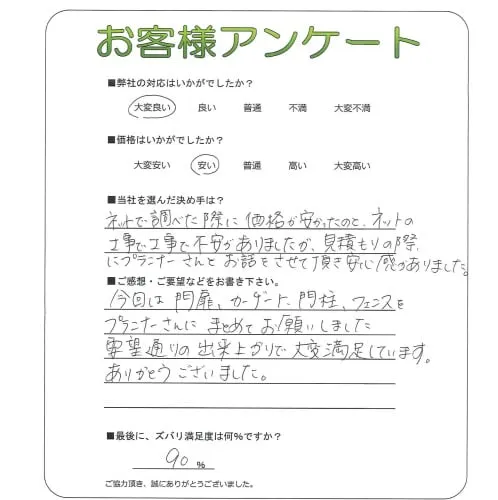 お客様アンケート
■弊社の対応はいかがでしたか？
大変良い 良い 普通 不満 大変不満
■価格はいかがでしたか？
大変安い 安い 普通 高い 大変高い
■当社を選んだ決め手は？
ネットで調べた際に価格が安かったのと、ネットの
工事で工事で不安がありましたが、見積もりの際、
にプランナーさんとお話をさせて頂き安心感がありました。
■ご感想・ご要望などをお書き下さい。
今回は門扉、カーゲート、門柱、フェンスを
プランナーさんにまとめてお願いしました
要望通りの出来上がりで大変満足しています。
ありがとうございました。
■最後に、ズバリ満足度は何％ですか？
90 ％
ご協力頂き、誠にありがとうございました。